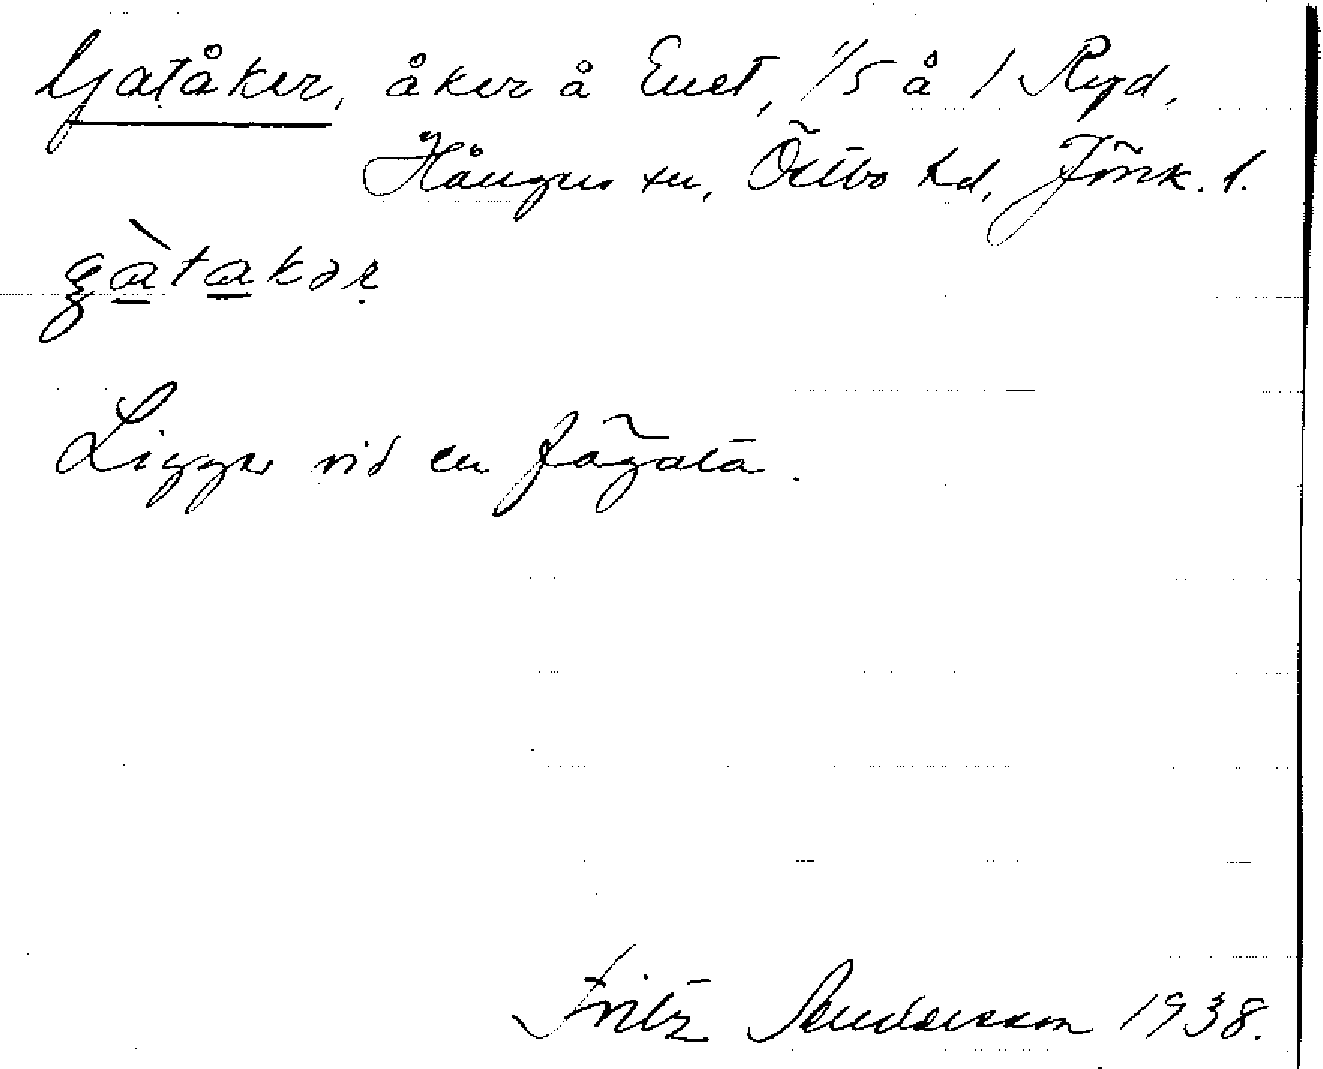 Gatåker, åker å Enet, 1/5 å 1 Ryd,
Hånger sn, Östbo hd, Jönk. l.
gàtakər
Ligger vid en fägata.
Fritz Andersson 1938.